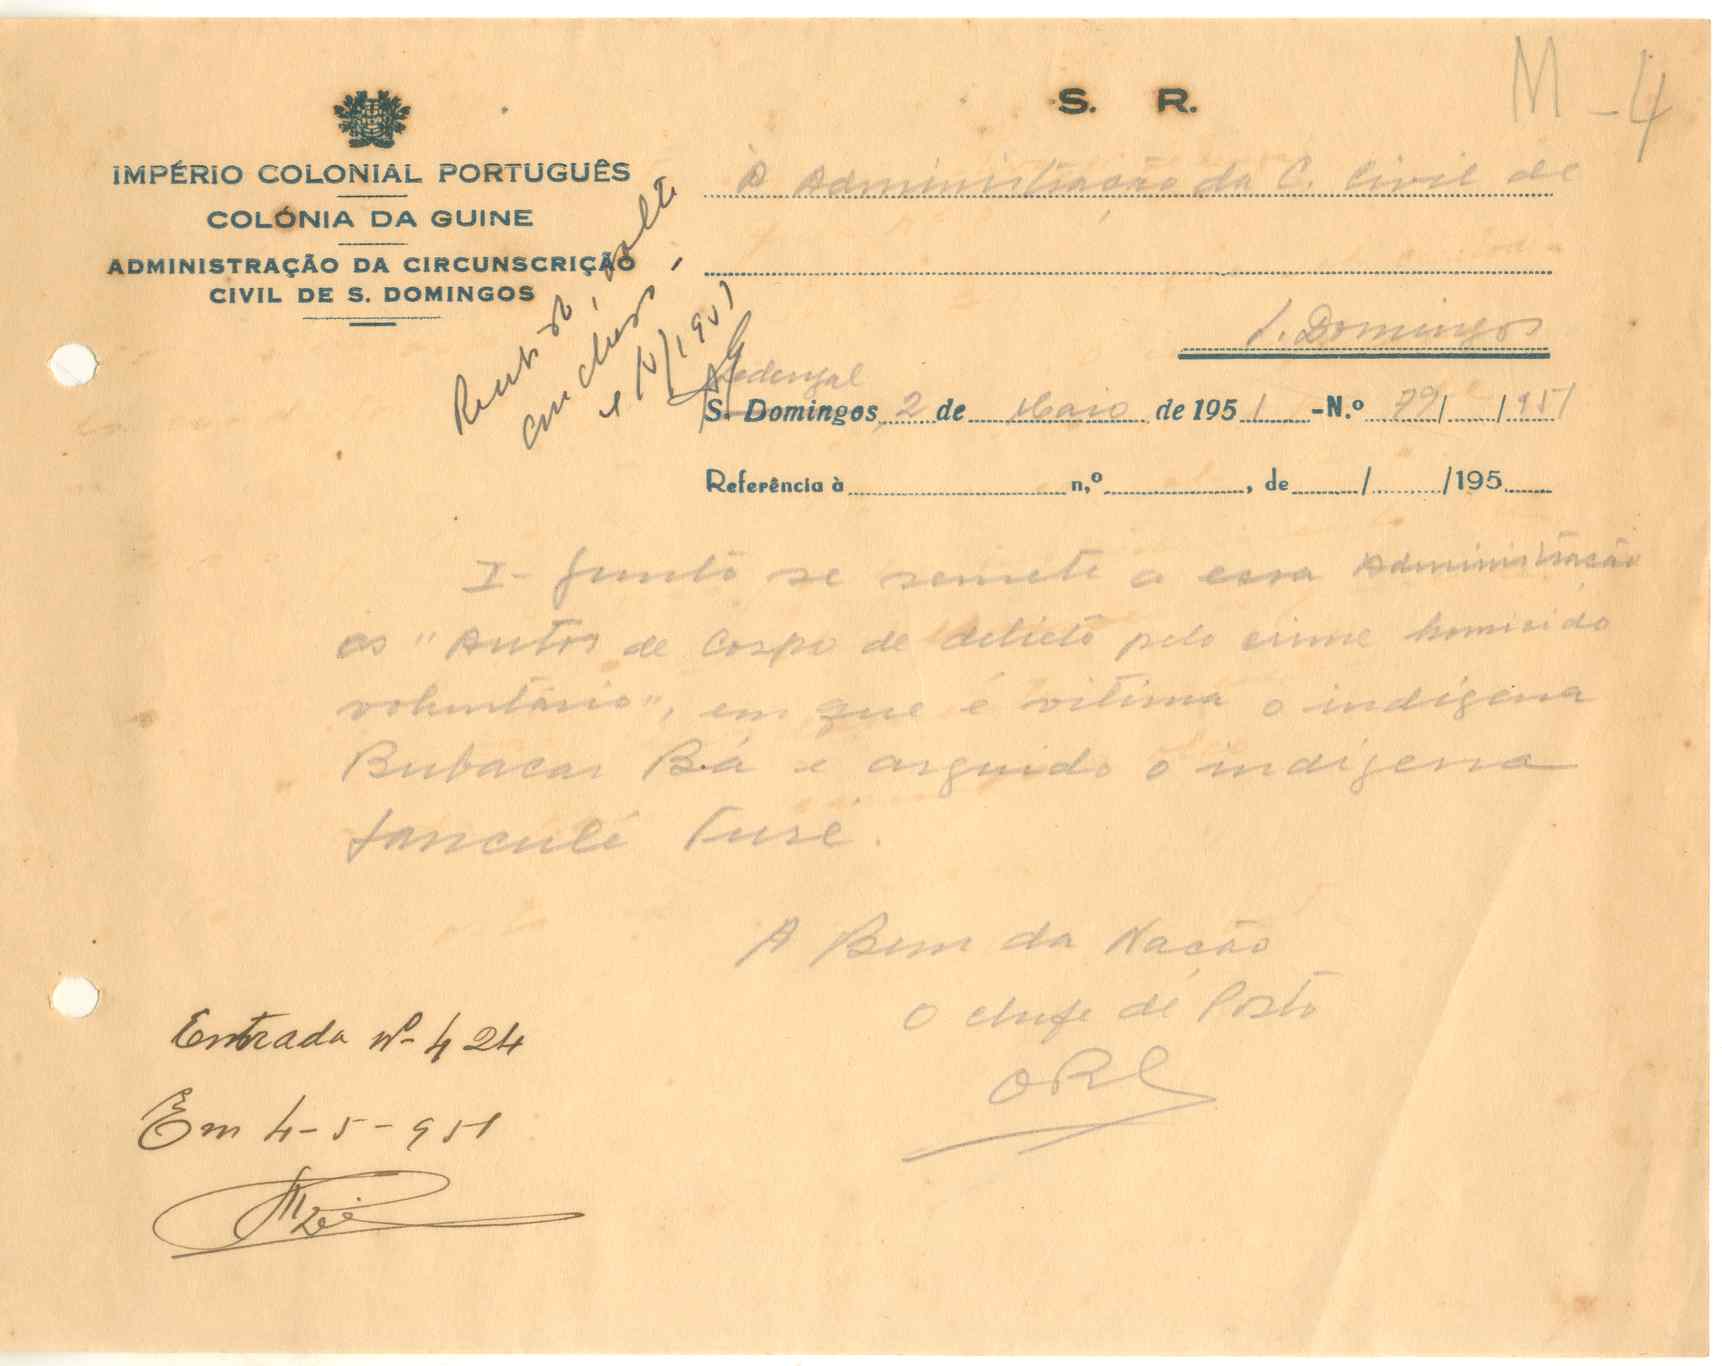 M - 4
S. R.
IMPÉRIO COLONIAL PORTUGUÊS
COLÓNIA DA GUINE
ADMINISTRAÇÃO DA CIRCUNSCRIÇÃO
CIVIL DE S. DOMINGOS
À Administração da C. Civil de
S. Domingos
volte
concluso
S. Domingos, 2 de Maio de 1951 -N.º 79/ /951
Referência à n,º , de / /195
I- Junto se remete a essa Administração
os "Autos de Corpo de delicto pelo crime homicido
voluntário", em que é vitima o indígena
Bubacar Bá e arguido o indígena
Sanculé Turé.
A Bem da Nação
O Chefe de Posto
Entrada nº 424
Em 4-5-951